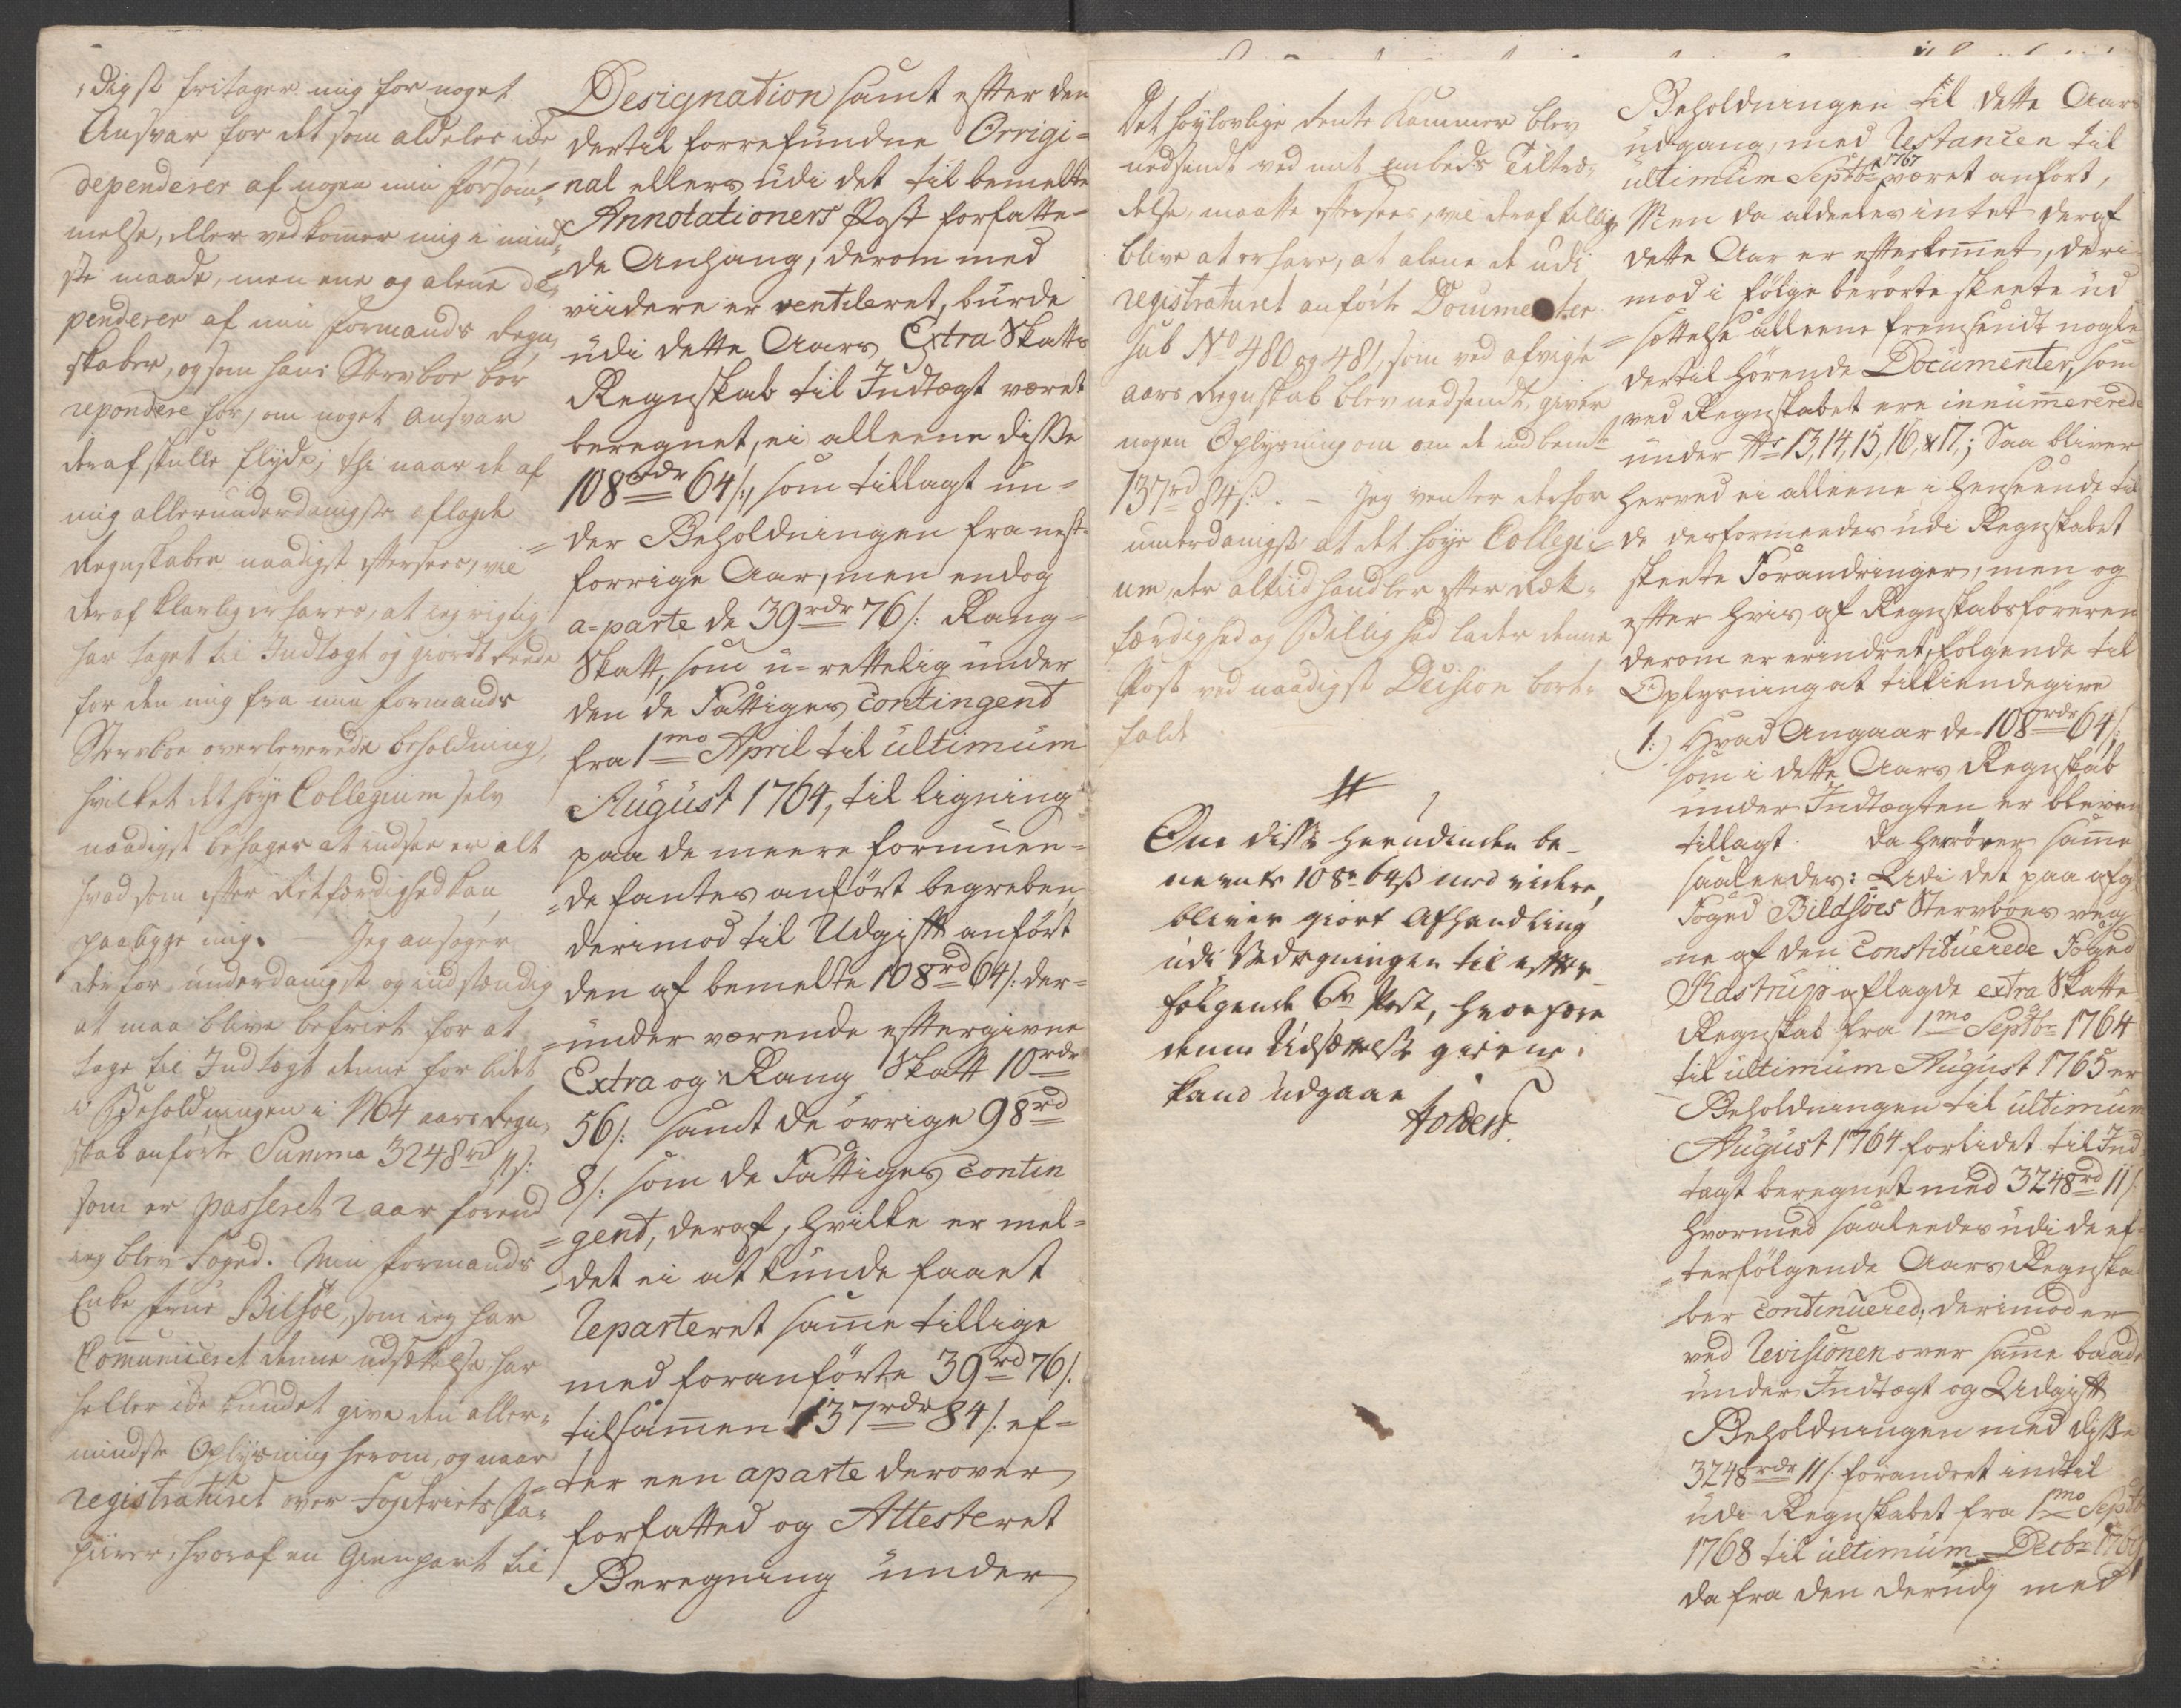 digst fritager mig for noget
Ansvar for det som aldeles icke
dependerer af nogen min forsøm-
melse, eller vedkommer mig i mind-
ste maade, men ene og alene de-
penderer af min Formands Regn-
skaber, og som hans Sterboe bør
repondere for, om noget Ansvar
deraf skulle flyde; thi naar de af
mig allerunderdanigste aflagde
Regnskaber naadigst eftersees, vil
deraf klarlig erfares, at jeg rigtig
har taget til Indtægt og giordt Rede
for den mig fra min Formands
Sterboe overleverede beholdning,
hvilket det høye Collegium selv
naadigst behager at indsee er alt
hvad som efter Retfærdighed kan
paaligge mig. Jeg ansøger
derfor underdanigst og indstændig
at maa blive befriet for at
tage til Indtægt denne for lidet
i Beholdningen i 1764 aars Regn-
skab anførte Summa 3248 rd 11 s:
som er passeret 2 aar forend
jeg blev Foged. Min Formands
Enke Frue Bilsøe, som jeg har
Communiceret denne udsættelse, har
heller icke kundet give den aller-
mindste Oplysning herom, og naar
registraturet over Fogderiets Pa-
piirer, hvoraf en Gienpart til
Designation samt efter den
dertil forrefundne Orrigi-
nal ellers udi det til bemelte
Annotationers Post forfatte-
de Anhang, derom med
viidere er ventileret, burde
udi dette Aars Extra Skatts
Regnskab til Indtægt været
beregnet, ei alleene disse
108 rdr 64 /:, som tillagt un-
der Beholdningen fra nest-
forrige Aar, men endog
a-parte de 39 rdr 76 /: Rang-
Skatt, som u-rettelig under
den de Fattiges Contingent
fra 1mo April til ultimum
August 1764, til ligning
paa de meere formuen-
de fantes anført begreben,
derimod til Udgift anført
den af bemelte 108 rd 64 /: der-
under værende eftergivne
Extra og Rang Skatt 10 rdr
56 /: samt de øvrige 98 rd
8 /: som de Fattiges Contin
gent, deraf, hvilke er mel-
det ei at kunde faaet
Reparteret samme tillige
med foranførte 39 rd 76 /:
tilsammen 137 rdr 84 /: ef-
ter een aparte derover
forfatted og Attesteret
Beregning under
Det høylovlige Rente Kammer blev
nedsendt ved mit Embeds Tiltræ-
delse, maatte eftersees, vil deraf tillige
blive at erfare, at alene de udi
registraturet anførte Documenter
sub No 480 og 481, som ved afvigte
aars Regnskab blev nedsendt, giver
nogen Oplysning om de indbemte
137 rd 84 s. - Jeg venter derfor
underdanigst, at det høye Collegi-
um, der altiid handler efter Ræt-
færdighed og Billighed lader denne
Post ved naadigst Decision bort-
falde
#
Om disse herudinden be-
nevnte 108 r 64 s med videre,
bliver giort Afhandling
udi Tædegningen til efter-
følgende 6te Post, hvorfore
denne Udsættelse gierne
kand udgaae
Beholdningen til dette Aars
udgang, med Restancen til
ultimum Septbr 1767 været anført,
Men da aldeeles intet deraf
dette Aar er efterkommet, deri-
mod i følge berørte skeete ud
sættelse alleene fremsendt nogle
dertil hørende Documenter, som
ved Regnskabet ere innummererede
under No 13, 14, 15, 16, & 17,; Saa bliver
herved ei alleene i henseende til
de desformeedes udi Regnskabet
skeete Forandringer, men og
efter hvis af Regnskabsføreren
derom er erindret, folgende til
Oplysning at tilkiendegive
1:) Hvad Angaar de 108 rdr 64 /:
som i dette Aars Regnskab
under Indtægten er bleven
tillagt. da herrører samme
saaleedes: Udi det paa afg:
Foged Bildsøes Sterboes veg
ne af den Constituerede Foged
Kastrup aflagde extra Skatte
Regnskab fra 1mo Septbr 1764
til ultimum August 1765 er
Beholdningen til ultimum
August 1764 forlidet til Ind-
tægt beregnet med 3248 rd 11 /:
hvormed saaleedes udi de ef-
terfølgende Aars Regnska
ber Continuered; derimod er
ved Revisionen over samme baade
under Indtægt og Udgift
Beholdningen med disse
3248 rdr 11 /: forandret indtil
udi Regnskabet fra 1mo Septbr
1768 til ultimum Decbr
da fra den derudj med